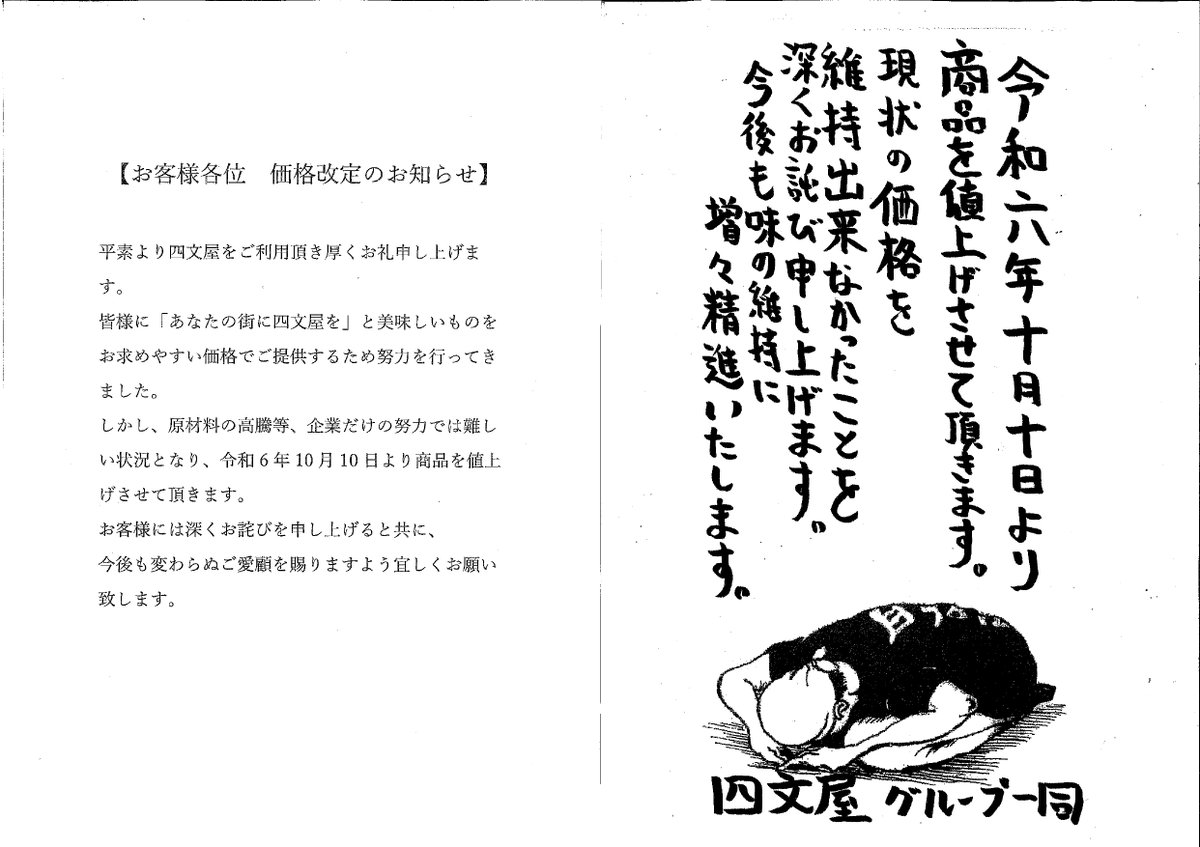 【お客様各位　価格改定のお知らせ】
平素より四文屋をご利用頂き厚くお礼申し上げま
す。
皆様に「あなたの街に四文屋を」と美味しいものを
お求めやすい価格でご提供するため努力を行ってき
ました。
しかし、原材料の高騰等、企業だけの努力では難し
い状況となり、令和6年10月10日より商品を値上
げさせて頂きます。
お客様には深くお詫びを申し上げると共に、
今後も変わらぬご愛顧を賜りますよう宜しくお願い
致します。
令和六年十月十日より
商品を値上げさせて頂きます。
現状の価格を
維持出来なかったことを
深くお詫び申し上げます。
今後も味の維持に
増々精進いたします。
四文屋 グループ一同